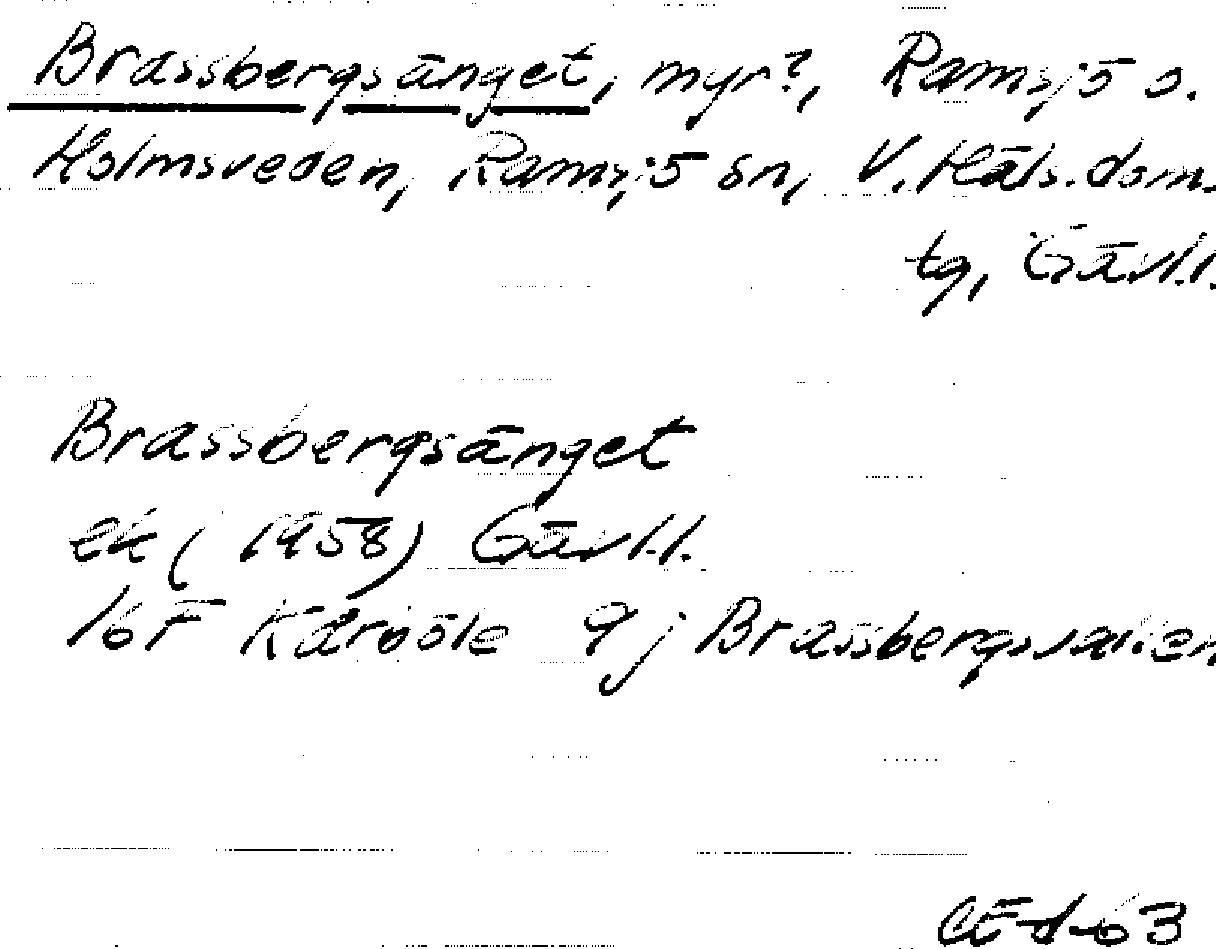 Brassbergsänget, myr?, Ramsjö o.
Holmsveden, Ramsjö sn, V. Häls. doms.
tg, Gävl.l.
Brassbergsänget
ek (1958) Gävl.l.
16F Kårböle 9j Brassbergsvallen